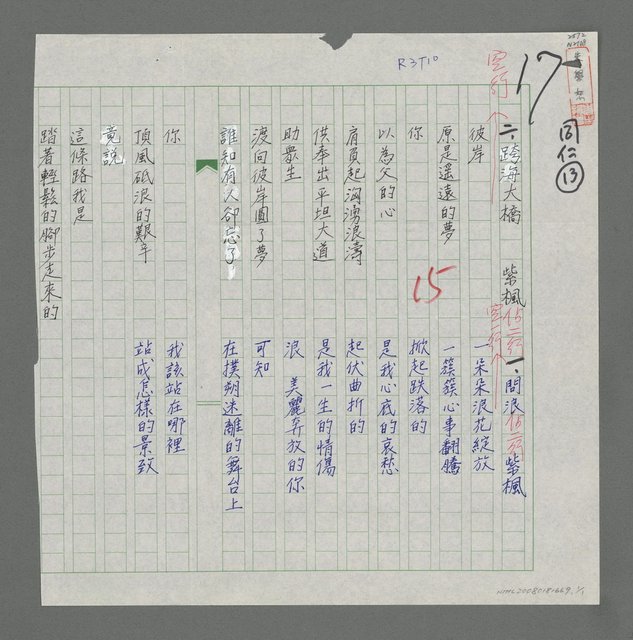 R3T10
17
同仁
13
空一行
二、跨海大橋 紫楓
彼岸
原是遙遠的夢
你
以為父的心
肩負起洶湧浪濤
供奉出平坦大道
助眾生
渡向彼岸圓了夢
誰知有人卻忘了
你
頂風砥浪的艱辛
竟說
這條路我是
踏著輕鬆的腳步走來的
15
空一行
一、問浪 紫楓
一朵朵浪花綻放
一簇簇心事翻騰
掀起跌落的
是我心底的哀愁
起伏曲折的
是我一生的情傷
浪 美麗奔放的你
可知
在撲朔迷離的舞台上
我該站在哪裡
站成怎樣的景致